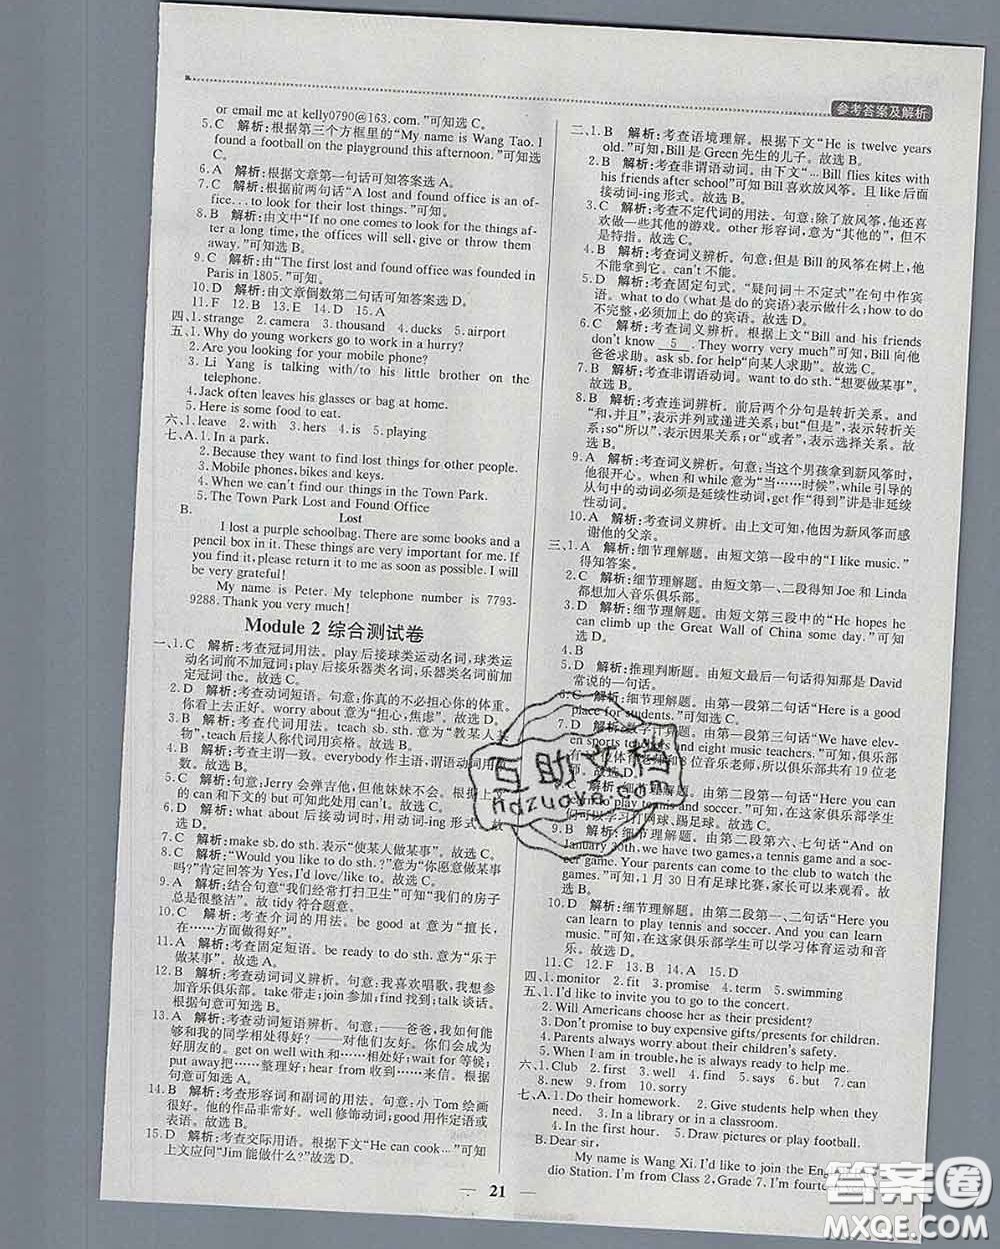 参考答案及解析
or email me at kelly0790@163.com. ”可知选C。
5.C 解析:根据第三个方框里的“My name is Wang Tao. I
found a football on the playground this afternoon.”可知选C。
6.A 解析:根据文章第一句话可知答案选A。
7.C 解析:根据前两句话“A lost and found office is an of-
fice... to look for their lost things. ”可知。
8.B 解析:由文中“If no one comes to look for the things af-
ter a long time, the offices will sell, give or throw them
away.”可知选B。
9.C 解析:由“The first lost and found office was founded in
Paris in 1805. ”可知。
10.D 解析:由文章倒数第二句话可知答案选D。
11.F 12.B 13.E 14.D 15.A
四、1. strange 2. camera 3. thousand 4. ducks 5. airport
五、1. Why do young workers go to work in a hurry?
2. Are you looking for your mobile phone?
3. Li Yang is talking with/to his little brother on the
telephone.
4. Jack often leaves his glasses or bag at home.
5. Here is some food to eat.
六、1. leave 2. with 3. hers 4. is 5. playing
七、A. 1. In a park.
2. Because they want to find lost things for other people.
3. Mobile phones, bikes and keys.
4. When we can't find our things in the Town Park.
5. The Town Park Lost and Found Office
B. Lost
I lost a purple schoolbag. There are some books and a
pencil box in it. These things are very important for me. If
you find it, please return it to me as soon as possible. I will
be very grateful!
My name is Peter. My telephone number is 7793-
9288. Thank you very much!
Module 2 综合测试卷
一、1.C 解析:考查冠词用法。play 后接球类运动名词,球类运
动名词前不加冠词;play 后接乐器类名词,乐器类名词前加
定冠词 the。故选C。
2.D 解析:考查动词短语。句意:你真的不必担心你的体重。
你看上去正好。worry about 意为“担心,焦虑”。故选D。
3.B 解析:考查代词用法。teach sb. sth. 意为“教某人某
物”,teach 后接人称代词用宾格。故选B。
4.B 解析:考查主谓一致。everybody 作主语,谓语动词用
故选B。
5.C 解析:句意:Jerry 会弹吉他,但他妹妹不会。根据上
的 can 和下文的 but 可知此处用 can't。故选C。
解析:about 后接动词时,用动词-ing 形式。故
选D。
7.C 解析:make sb. do sth. 表示“使某人做某事”。故选C。
8.C 解析:“Would you like to do sth. ?”意为“你愿意做某事
吗?”肯定回答为 Yes, I'd love/like to。故选C。
9.A 解析:结合句意“我们经常打扫卫生”可知“我们的房子
总是很整洁”。故 tidy 符合题意。
10.C 解析:考查介词的用法。be good at 意为“擅长,
在……方面做得好”。故选C。
11.A 解析:考查固定短语。be ready to do sth. 意为“乐于
做某事”。故选A。
12.B 解析:考查动词词义辨析。句意:我喜欢唱歌,我想参
加音乐俱乐部。take 带走;join 参加;find 找到;talk 谈话。
根据句意可知选B。
13.A 解析:考查动词短语辨析。句意:——爸爸,我如何能
够和我的同学相处得好?——对他们友好。你们会成为
好朋友的。get on well with 和……相处好;wait for 等候;
put away把……整理好;hear from 收到……来信。根据
句意可知选A。
14.B 解析:考查形容词和副词的用法。句意:小 Tom 绘画
很好。他的作品非常好。well 修饰动词;good 用作定语或
表语。故选B。
15.D 解析:考查交际用语。根据下文“He can cook...”可知
上文应问“Jim 能做什么?”故选D。
二、1.B 解析:考查语境理解。根据下文“He is twelve years
old.”可知,Bill 是 Green 先生的儿子。故选B。
2.B 解析:考查非谓语动词。由下文“... Bill flies kites with
his friends after school”可知 Bill 喜欢放风筝。且 like 后面
接动词-ing 形式。故选B。
3.C 解析:考查不定代词的用法。句意:除了放风筝,他还喜
欢做一些其他的游戏。other 形容词,意为“其他的”,但不
是特指。故选C。
4.B 解析:考查词义辨析。句意:但是 Bill 的风筝在树上,他
无法拿到它。can't 不能。
5.D 解析:考查固定句式。“疑问词+不定式”在句中作宾
语。what to do (what 是 do 的宾语)表示做什么;how to do
不完整,必须加上 do 的宾语。故选D。
6.C 解析:考查词义辨析。根据上文“Bill and his friends
don't know 5 . They worry very much”可知,Bill 向他
爸爸求助。ask sb. for help“向某人求助”。故选C。
7.B 解析:考查非谓语动词。want to do sth. “想要做某事”。
故选B。
8.B 解析:考查连词辨析。前后两个分句是转折关系。and
“和,并且”,表示并列或递进关系;but“但是”,表示转折关
系;so“所以”,表示因果关系;or“或者”,表示选择关系。
故选B。
9.A 解析:考查词义辨析。句意:当这个男孩拿到新风筝时,
他很开心。when 和 while 意为“当……时候”,while 引导的
从句中的动词必须是延续性动词,get 作“得到”讲是非延续
性动词。故选A。
10.A 解析:考查词义辨析。由上文可知,他因为新风筝而感
谢他的父亲。故选A。
三、1.A 解析:细节理解题。由短文第一段中的“I like music.”
得知答案。
2.C 解析:细节理解题。由短文第一、二段得知 Joe 和 Linda
都想加入音乐俱乐部。
3.D 解析:细节理解题。由短文第三段中的“He hopes he
can climb up the Great Wall of China some day.”可知。
4.B
5.D 解析:推理判断题。由短文最后一句话得知那是 David
常说的一句话。
6.C 解析:细节理解题。由第一段第二句话“Here is a good
place for students.”可知选C。
7.D 解析:数字计算题。由第一段第三句话“We have elev-
en sports teachers and eight music teachers.”可知,俱乐部
有 位体育老师和8位音乐老师,所以俱乐部共有19位老
师。故选D。
解析:细节理解题。由第二段第二句话“Here
play tennis and soccer.”可知,在这家俱乐部学生
们可以学习打网球、踢足球。故选C。
9.B 解析:细节理解题。由第二段第六、七句话“And on
January 30th, we have two games, a tennis game and a soc-
cer game. Your parents can come to the club to watch the
game.”可知,1月30日有足球比赛,家长可以来观看。故
选B。
10.D 解析:细节理解题。由第二段第一、二句话“Here you
can learn to play tennis and soccer. And you can learn
music.”可知,在这家俱乐部学生可以学习体育运动和音
乐。故选D。
11.C 12.F 13.B 14.A 15.D
四、1. monitor 2. fit 3. promise 4. term 5. swimming
五、1. I'd like to invite you to go to the concert.
2. Will Americans choose her as their president?
3. Don't promise to buy expensive gifts/presents for children.
4. Parents always worry about their children's safety.
5. When I am in trouble, he is always ready to help me.
六、1. Club 2. first 3. well 4. find 5. says 6. but 7. can
8. new 9. from 10. sorry
七、A. 1. Do their homework. 2. Give students help when they
need. 3. In a library or in a classroom.
4. In his first month. 5. Draw pictures or play football.
B. Dear sir,
My name is Wang Xi. I'd like to join the Eng
dio Station. I'm from Class 2, Grade 7. I'm fourte
21
互助文档
hdzuoye.com
答案圈
MXQE.COM